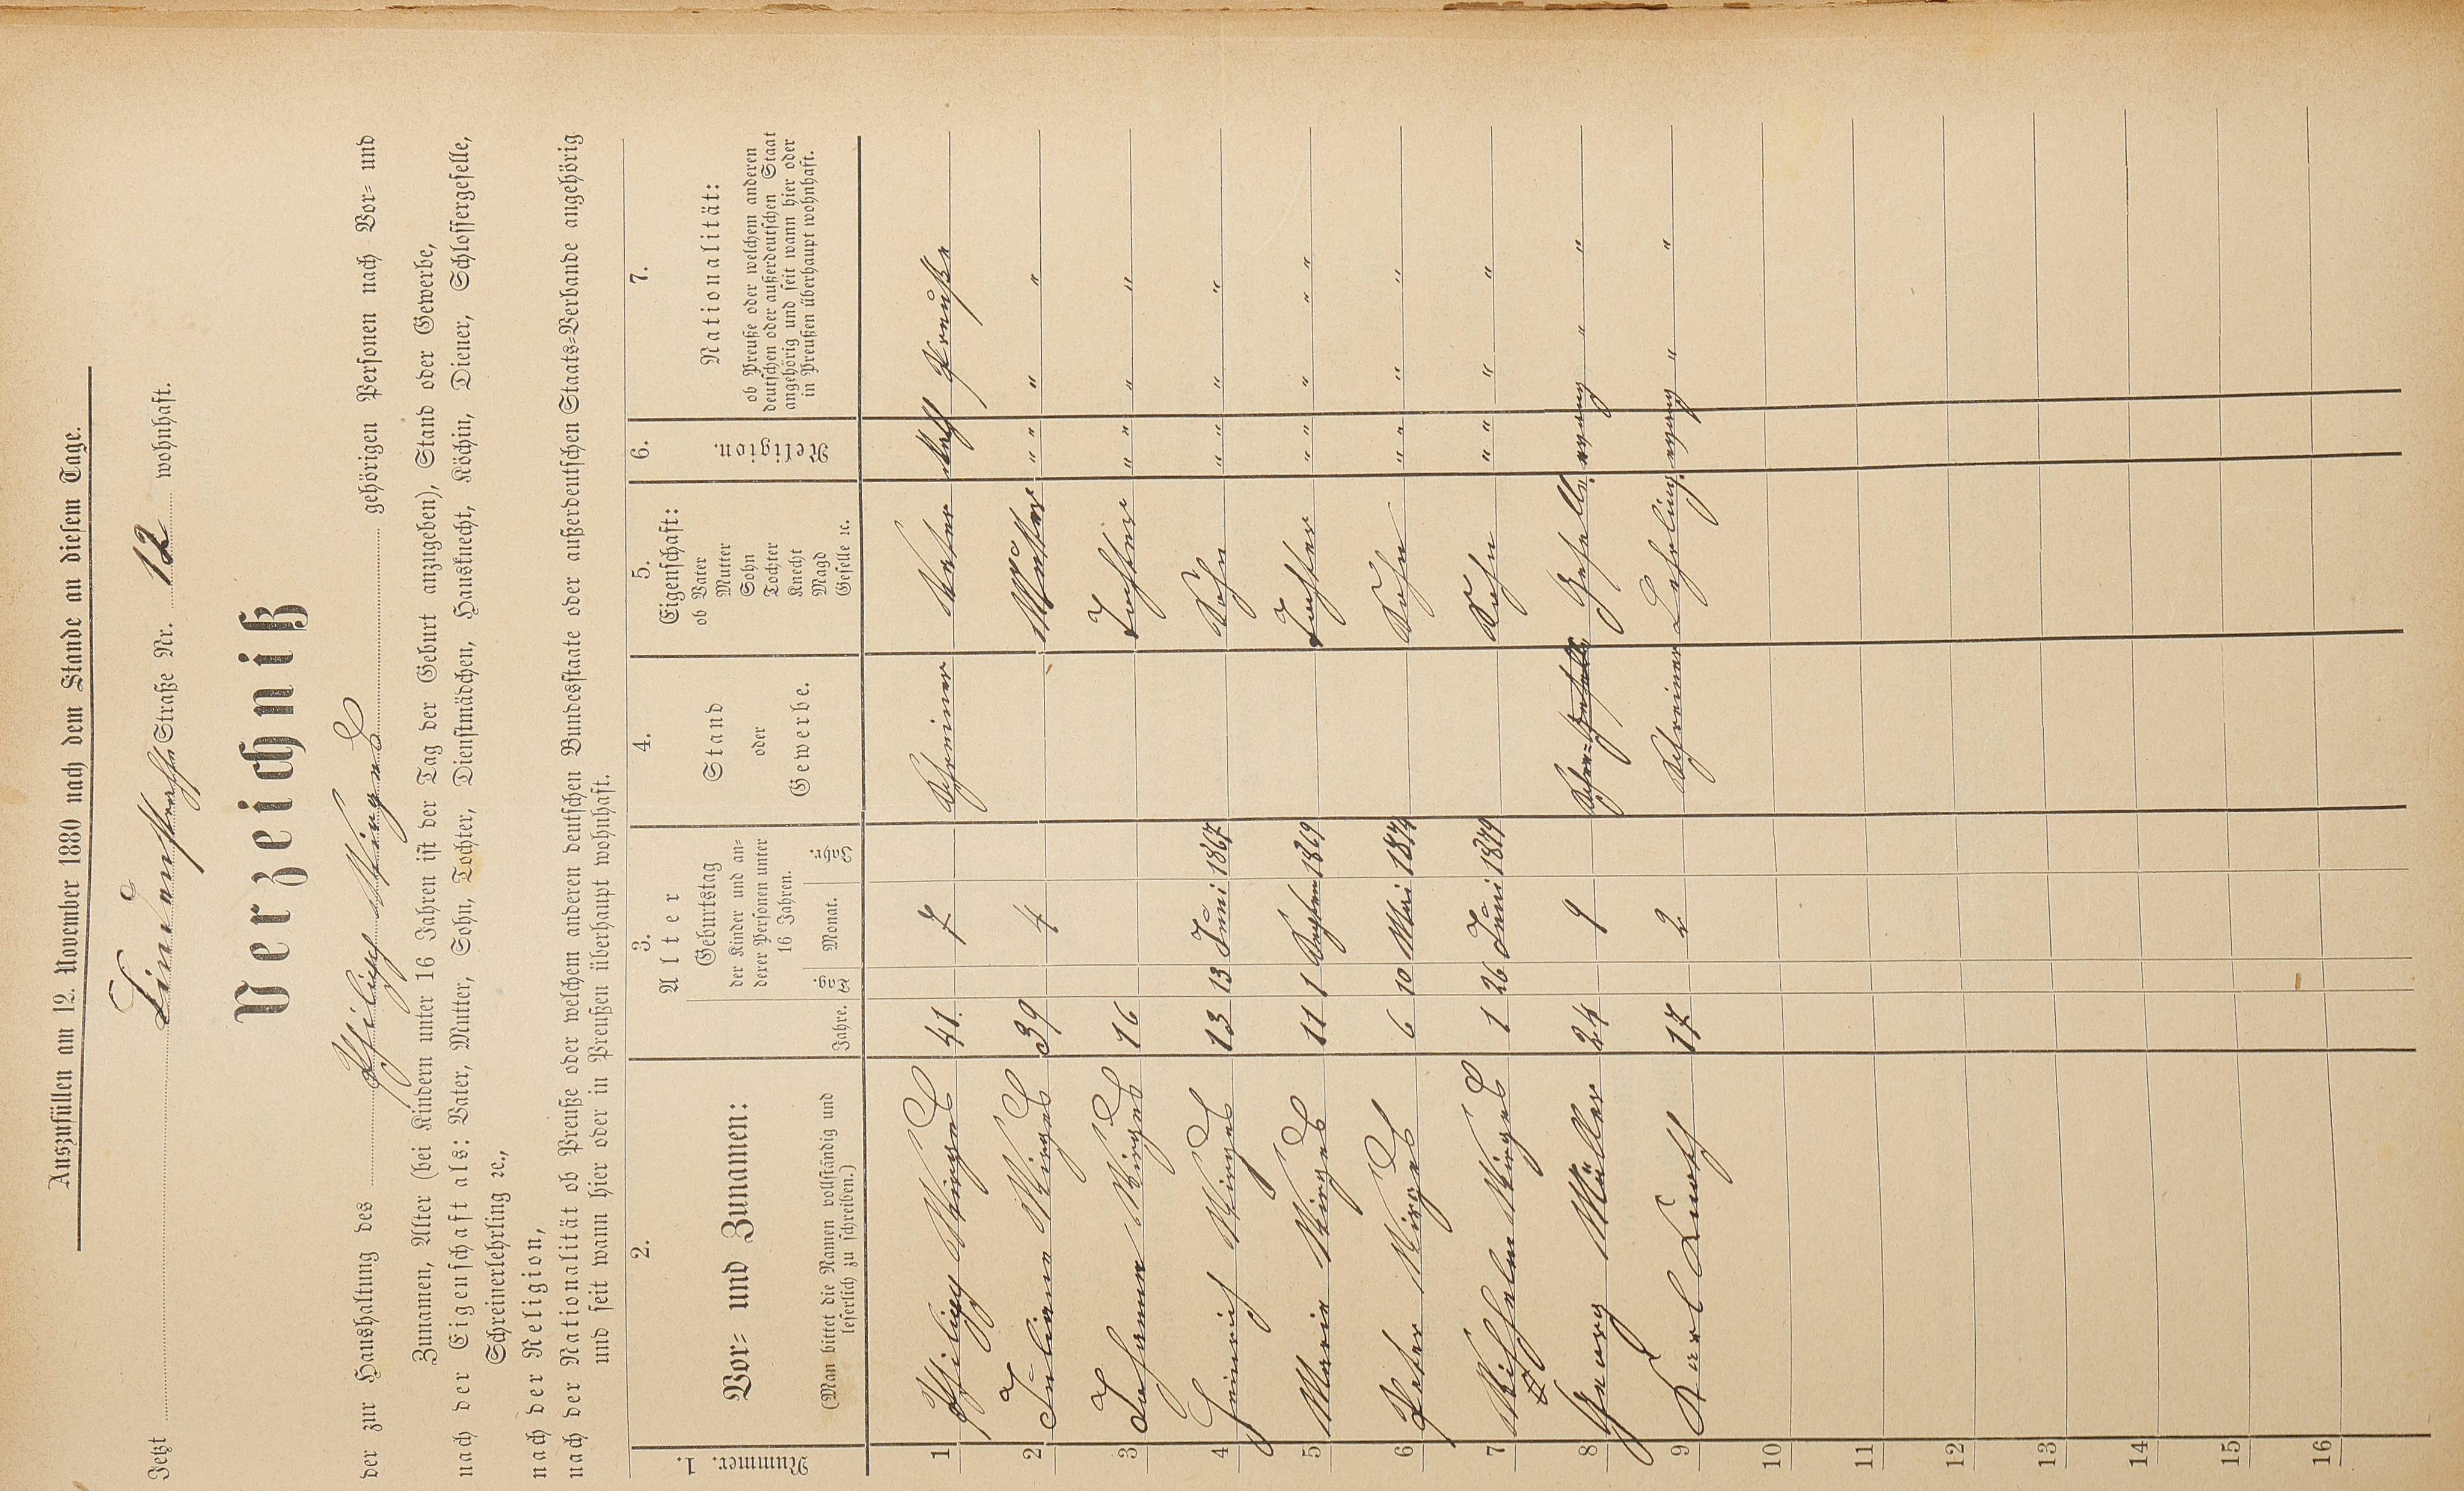 Auszufüllen am 12. November 1880 nach dem Stande an diesem Tage.
Jetzt Lindenstraße Straße Nr. 12 wohnhaft.
Verzeichniß
der zur Haushaltung des Philipp Wirges gehörigen Personen nach Vor- und
Zunamen, Alter (bei Kindern unter 16 Jahren ist der Tag der Geburt anzugeben), Stand oder Gewerbe,
nach der Eigenschaft als: Vater, Mutter, Sohn, Tochter, Dienstmädchen, Hausknecht, Köchin, Diener, Schlossergeselle,
Schreinerlehrling ꝛc.,
nach der Religion,
nach der Nationalität ob Preuße oder welchem anderen deutschen Bundesstaate oder außerdeutschen Staats-Verbande angehörig
und seit wann hier oder in Preußen überhaupt wohnhaft.
1. Nummer.
2. Vor- und Zunamen:
(Man bittet die Namen vollständig und
leserlich zu schreiben.)
3. Alter
Jahre.
Geburtstag
der Kinder und an-
derer Personen unter
16 Jahren.
Tag. Monat. Jahr.
4. Stand
oder
Gewerbe.
5. Eigenschaft:
ob Vater
Mutter
Sohn
Tochter
Knecht
Magd
Geselle ꝛc.
6. Religion.
7. Nationalität:
ob Preuße oder welchem anderen
deutschen oder außerdeutschen Staat
angehörig und seit wann hier oder
in Preußen überhaupt wohnhaft.
1 Philipp Wirges 41. 7 Schreiner Vater Kath Preuße
2 Juliane Wirges 39 4 Mutter " " " "
3 Johanna Wirges 16 Tochter " " " "
4 Heinrich Wirges 13 13 Juni 1867 Sohn " " " "
5 Marie Wirges 11 1 Septem 1869 Tochter " " " "
6 Peter Wirges 6 10 Mai 1874 Sohn " " " "
7 Wilhelm Wirges 1 26 Juni 1879 Sohn " " " "
8 Georg Müller 24 9 Geselle evang " "
9 Karl 17 2 Schreiner Lehrling evang " "
10
11
12
13
14
15
16